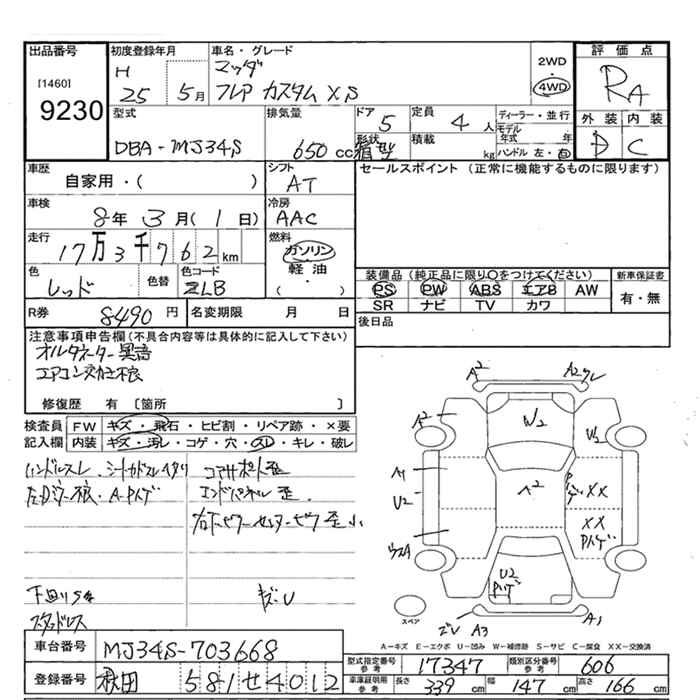 出品番号
[1460]
9230
初度登録年月
H 25 5月
車名・グレード
マツダ
フレア カスタム XS
2WD
・
4WD
評価点
RA
外装 内装
D C
型式
DBA-MJ34S
排気量
650 cc
ドア
5
定員
4 人
形状
箱型
積載
kg
ディーラー・並行
モデル年式 年
ハンドル 左・右
車歴
自家用・( )
シフト
AT
セールスポイント (正常に機能するものに限ります)
車検
8年 3月(1日)
冷房
AAC
走行
17万3千762km
燃料
ガソリン
軽油
( )
色
レッド
色替
色コード
ZLB
装備品 (純正品に限り○をつけてください)
PS PW ABS エアB AW
SR ナビ TV カワ
新車保証書
有・無
R券
8490 円
名変期限 月 日
後日品
注意事項申告欄(不具合内容等は具体的に記入して下さい)
オルタネーター異音
エアコンガス不良
修復歴 有 〔箇所 〕
検査員記入欄
FW キズ・飛石・ヒビ割・リペア跡・×要
内装 キズ・汚レ・コゲ・穴・スレ・キレ・破レ
ハンドルスレ
A-Pハゲ
コアサポート歪
エンドパネル歪
下回りサビ
スタッドレス
キズ・U
A2
A2
A2
W2
U2
A1
U2
A2
Pハゲ XX
XX Pハゲ
U2 Pハゲ
A3
A1
スペア
A－キズ E－エクボ U－凹み W－補修跡 S－サビ C－腐食 XX－交換済
車台番号
MJ34S-703668
登録番号
秋田 581せ4012
型式指定番号
参考
17347
類別区分番号
参考
606
車庫証明用
参考
長さ 339cm 幅 147cm 高さ 166cm